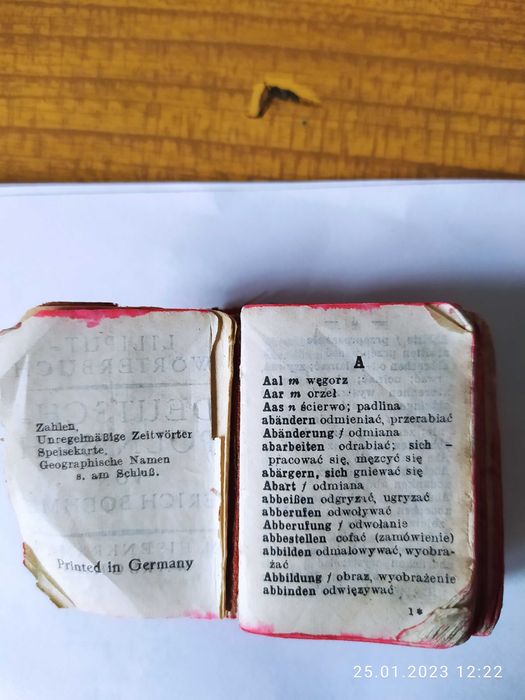 Zahlen,
Unregelmäßige Zeitwörter
Speisekarte,
Geographische Namen
s. am Schluß.
Printed in Germany
A
Aal m węgorz
Aar m orzeł
Aas n ścierwo; padlina
abändern odmieniać, przerabiać
Abänderung f odmiana
abarbeiten odrabiać; sich -
pracować się, męzcyć się
abärgern, sich gniewać się
Abart f odmiana
abbeißen odgryzać, ugryzać
abberufen odwoływać
Abberufung f odwołanie
abbestellen cofać (zamówienie)
abbilden odmalowywać, wyobra-
żać
Abbildung f obraz, wyobrażenie
abbinden odwięzywać
1*
25.01.2023 12:22